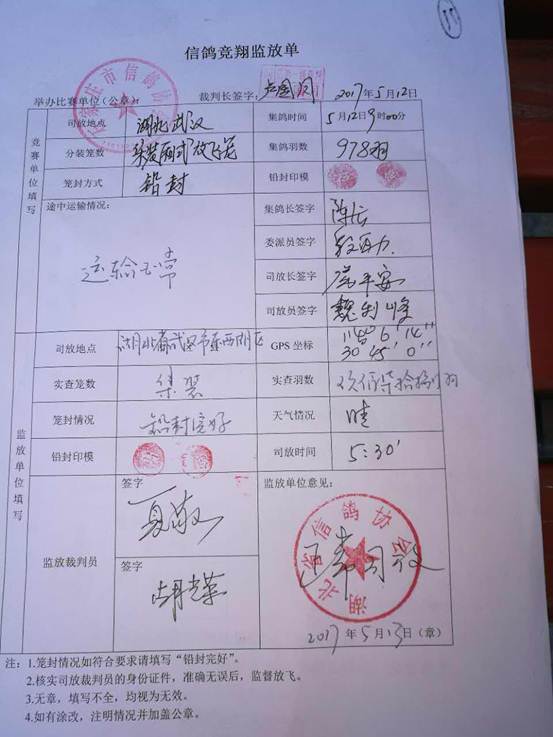 信鸽竞翔监放单
举办比赛单位(公章): 裁判长签字: 2017年5月12日
竞赛单位填写
司放地点 湖北武汉 集鸽时间 5月12日9时00分
分装笼数 集装厢式放飞笼 集鸽羽数 978羽
笼封方式 铅封 铅封印模
途中运输情况: 运输正常
集鸽长签字
委派员签字
司放长签字
司放员签字 魏利峰
监放单位填写
司放地点 湖北省武汉市东西湖区 GPS坐标 114° 6′ 14″
30° 45′ 0″
实查笼数 集装 实查羽数
笼封情况 铅封完好 天气情况 晴
铅封印模 司放时间 5:30′
监放裁判员
签字 夏敬
签字 胡光荣
监放单位意见:
湖北省信鸽协会
2017年5月13日(章)
注:1.笼封情况如符合要求请填写“铅封完好”。
2.核实司放裁判员的身份证件,准确无误后,监督放飞。
3.无章,填写不全,均视为无效。
4.如有涂改,注明情况并加盖公章。